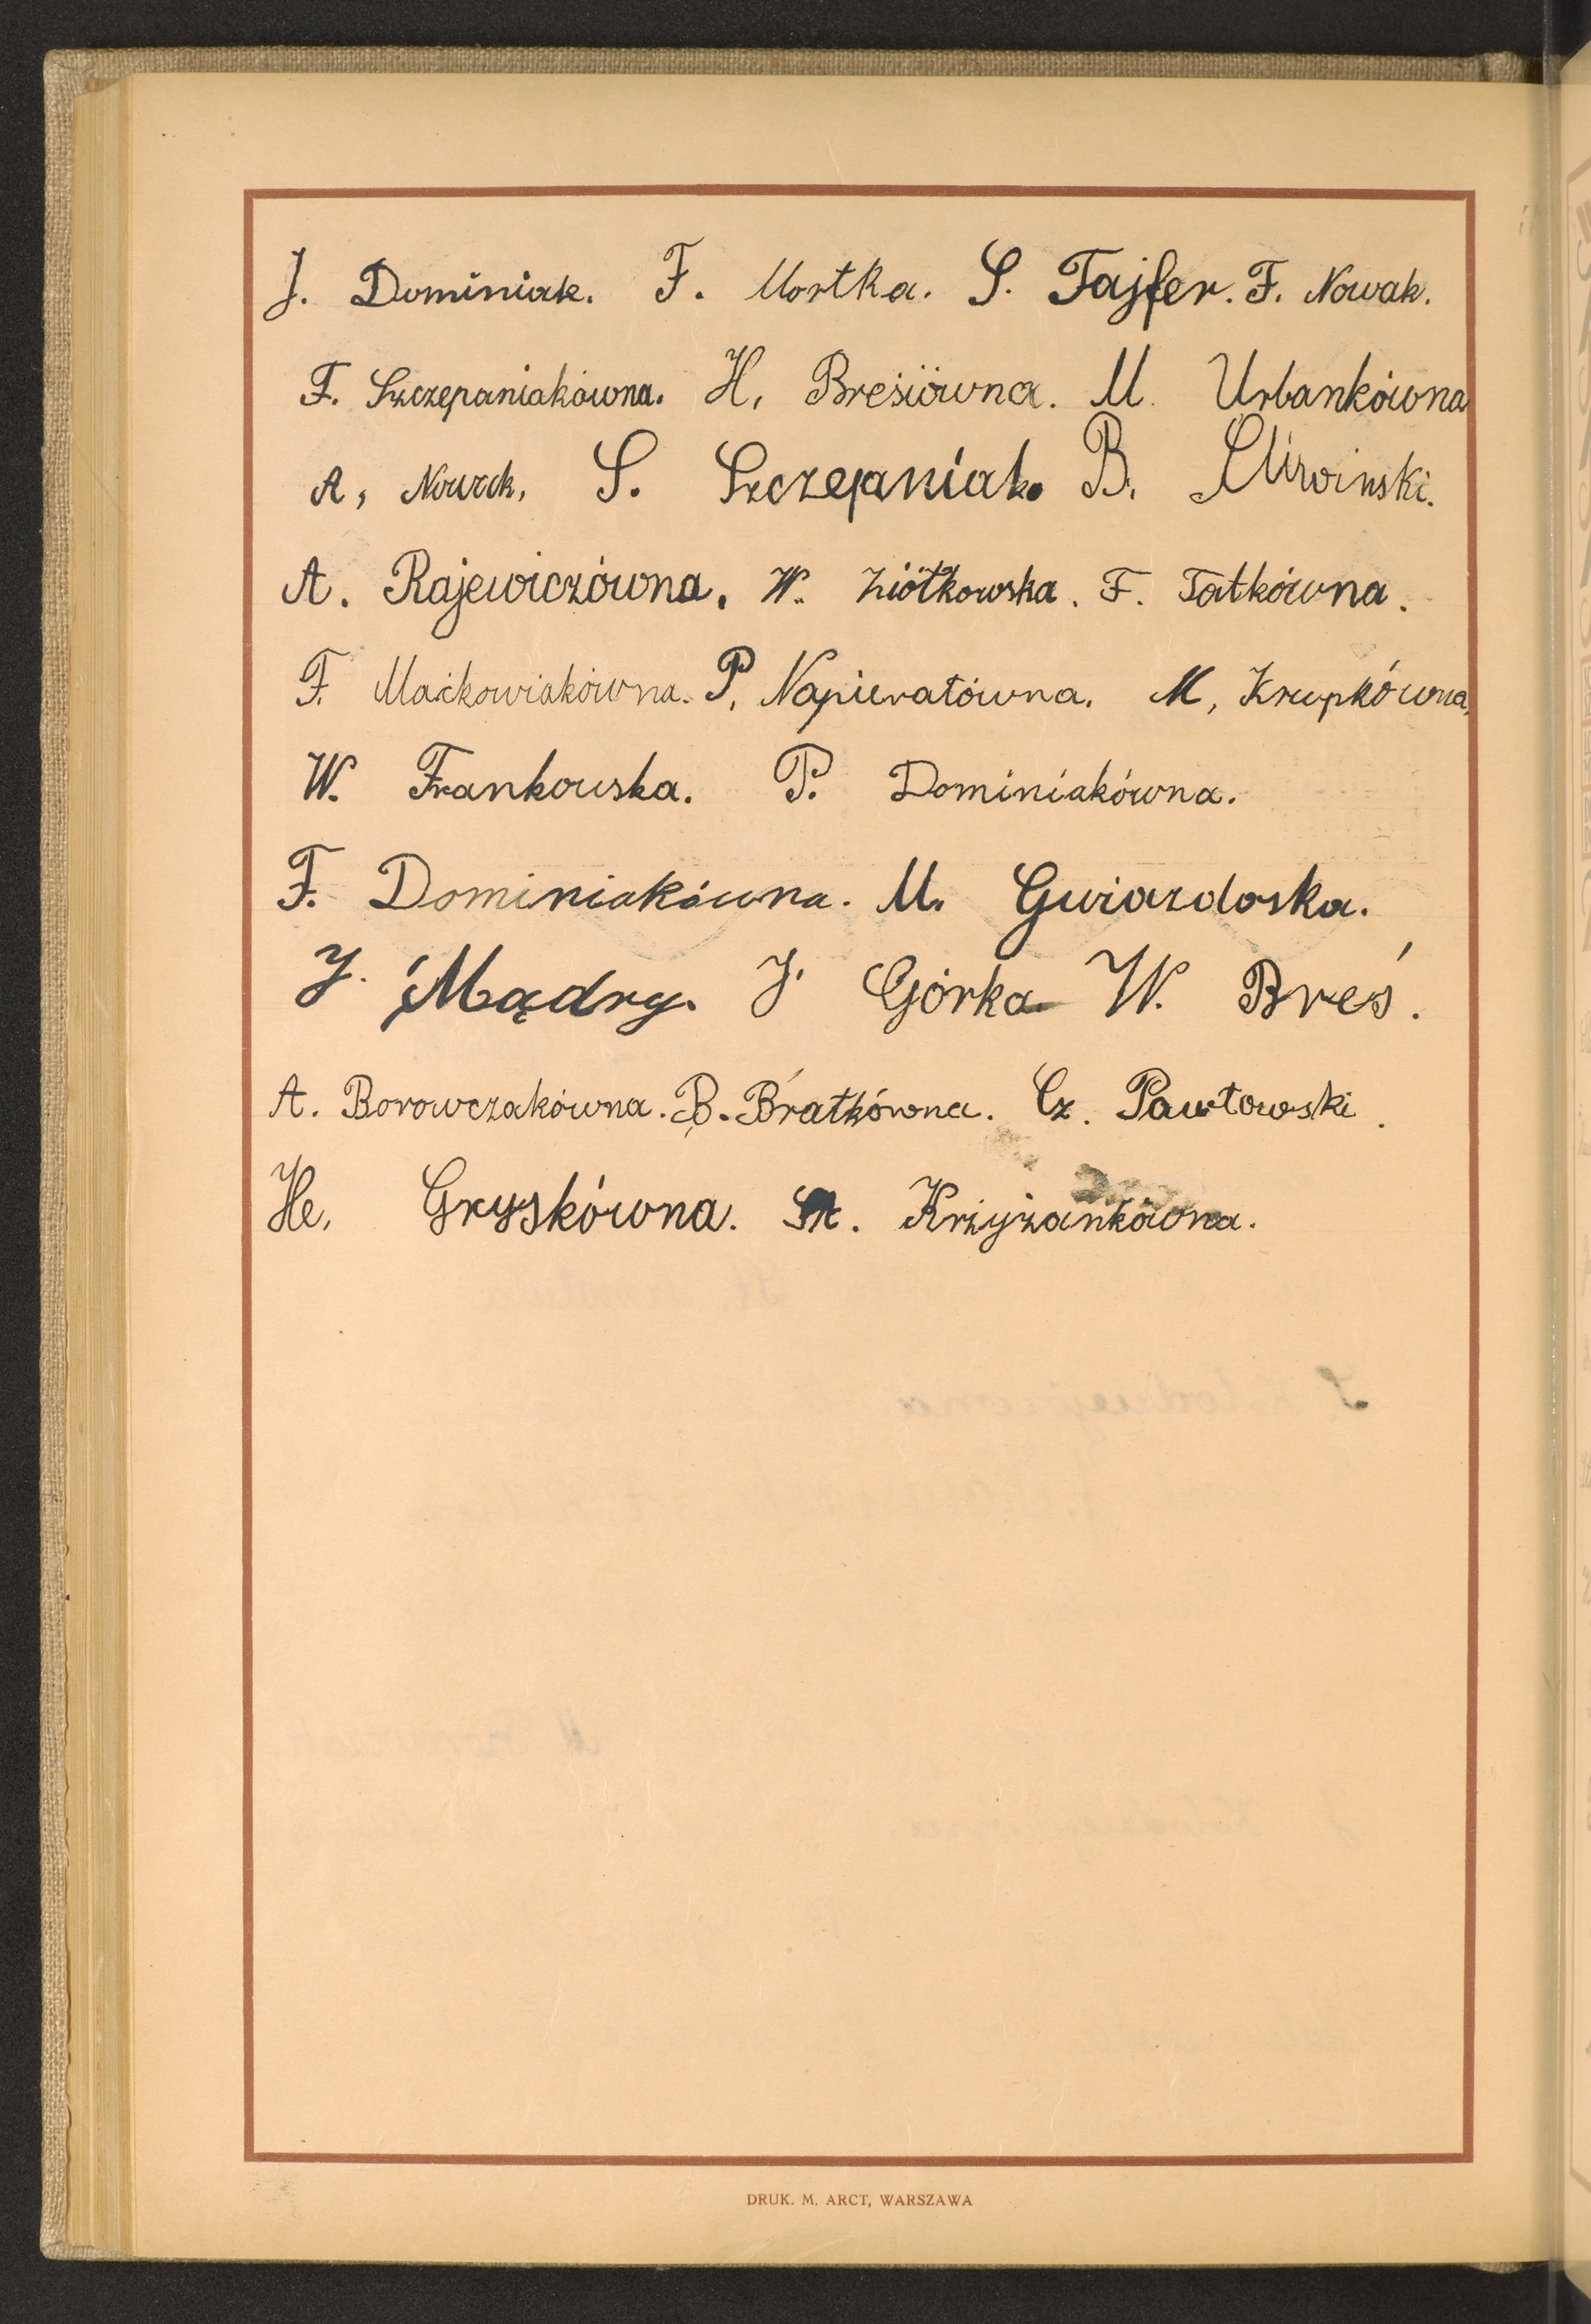 J. Dominiak. F. Mortka. S. Fajfer. F. Nowak.
F. Szczepaniakówna. H. Breśiówna. M. Urbankówna
A, Nowak. S. Szczepaniak. B. Śliwinski.
A. Rajewiczówna. W. Ziółkowska. F. Tatkówna.
F. Maćkowiakówna. P. Napierałówna. M, Krupkówna,
W. Frankowska. P. Dominiakówna.
F. Dominiakówna. M. Gwiazdoska.
J. Mądry. J. Górka W. Breś.
A. Borowczakówna. B. Bratkówna. Cz. Pawłowski.
He. Gryskówna. St. Krzyżankówna.
DRUK. M. ARCT, WARSZAWA